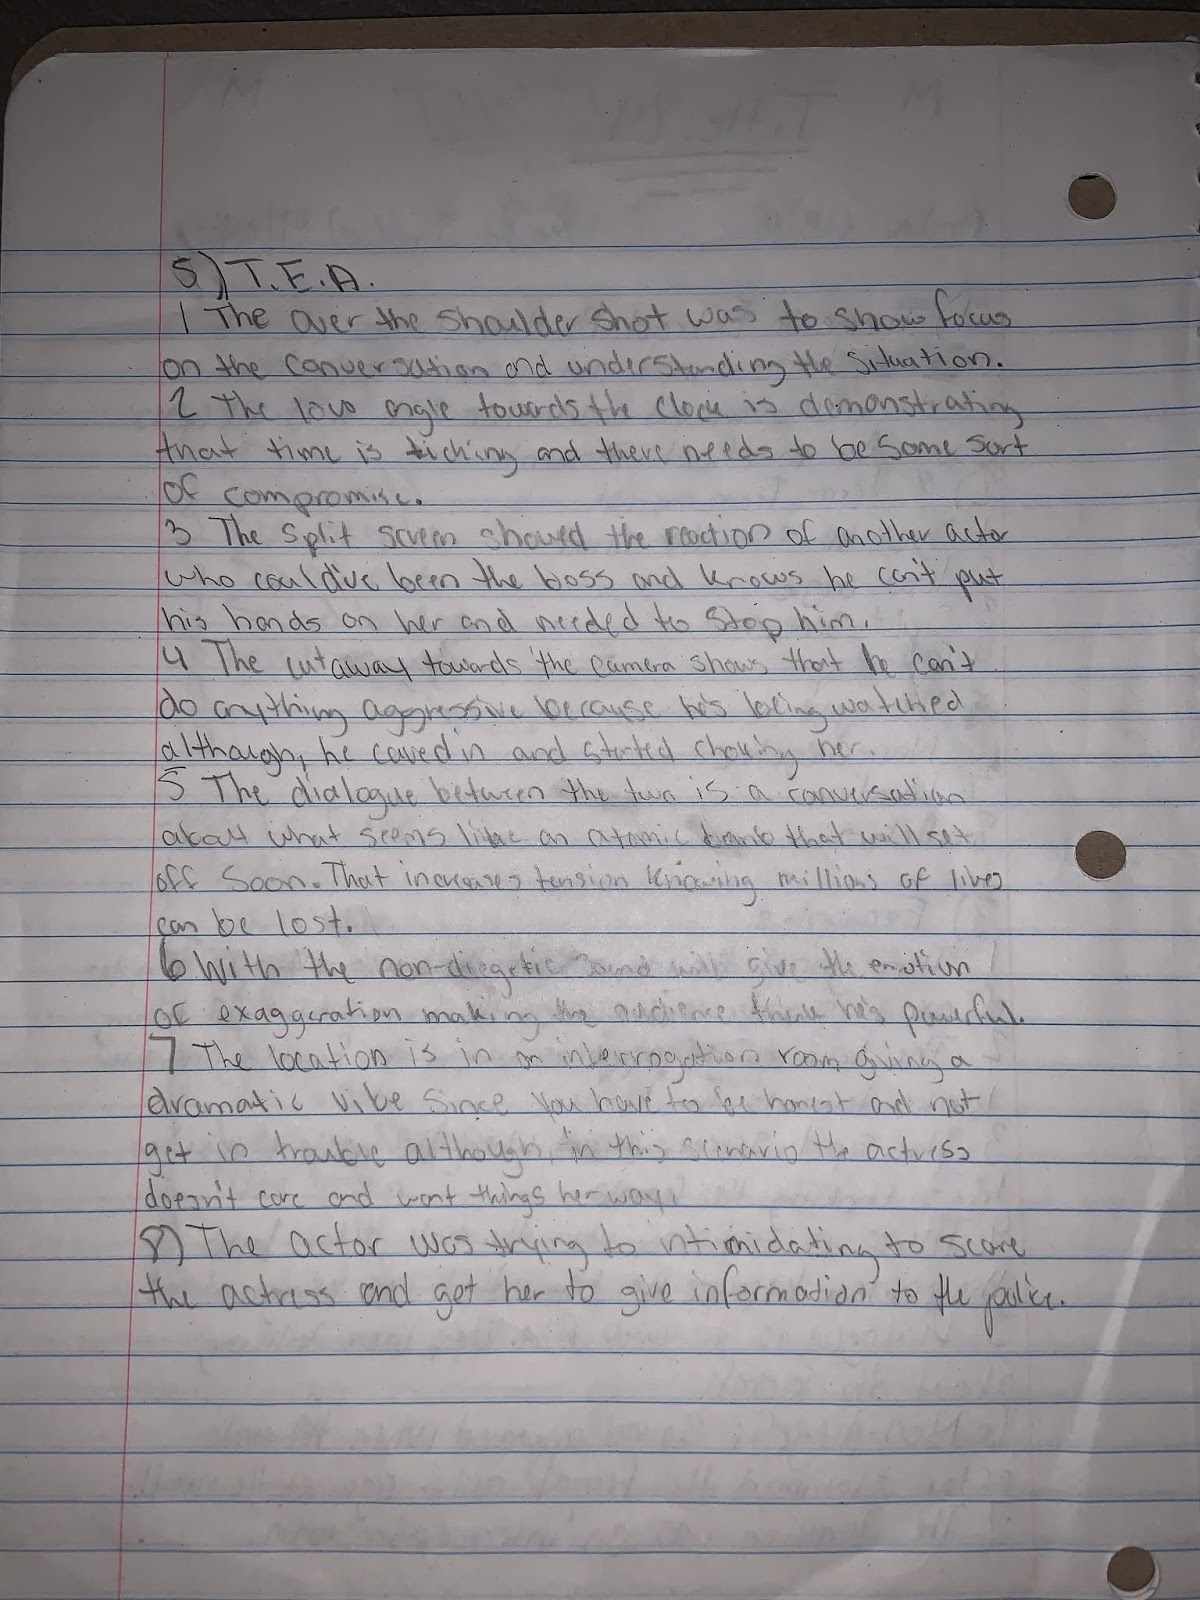 5) T.E.A.
1 The over the shoulder shot was to show focus
on the conversation and understanding the situation.
2 The low angle towards the clock is demonstrating
that time is ticking and there needs to be some sort
of compromise.
3 The split screen showed the reaction of another actor
who could've been the boss and knows he can't put
his hands on her and needed to stop him.
4 The cutaway towards the camera shows that he can't
do anything aggressive because he's being watched
although, he caved in and started choking her.
5 The dialogue between the two is a conversation
about what seems like an atomic bomb that will set
off soon. That increases tension knowing millions of lives
can be lost.
6 With the non-diegetic sound will give the emotion
of exaggeration making the audience think he's powerful.
7 The location is in an interrogation room giving a
dramatic vibe since you have to be honest and not
get in trouble although, in this scenario the actress
doesn't care and want things her way.
8) The actor was trying to intimidating to scare
the actress and get her to give information to the police.